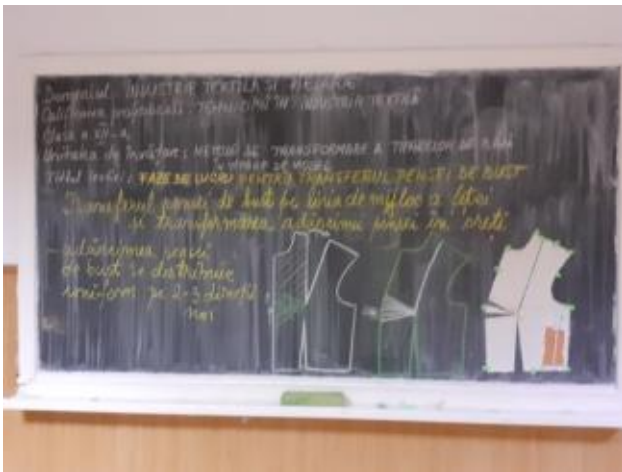 Domeniul: INDUSTRIE TEXTILĂ ȘI PIELĂRIE
Calificarea profesională: TEHNICIAN ÎN INDUSTRIA TEXTILĂ
Clasa a XII-a
Unitatea de învățare: METODE DE TRANSFORMARE A TIPARELOR DE BAZĂ
ÎN TIPARE DE MODEL
Titlul lecției: FAZE DE LUCRU PENTRU TRANSFERUL PENSEI DE BUST
Transferul pensei de bust pe linia de mijloc a feței
și transformarea adâncimii pensei în crețí
- adâncimea pensei
de bust se distribuie
uniform pe 2-3 direcții
noi